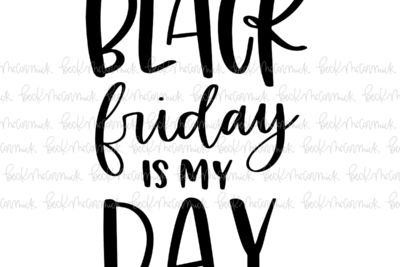 BLACK
friday
IS MY
DAY